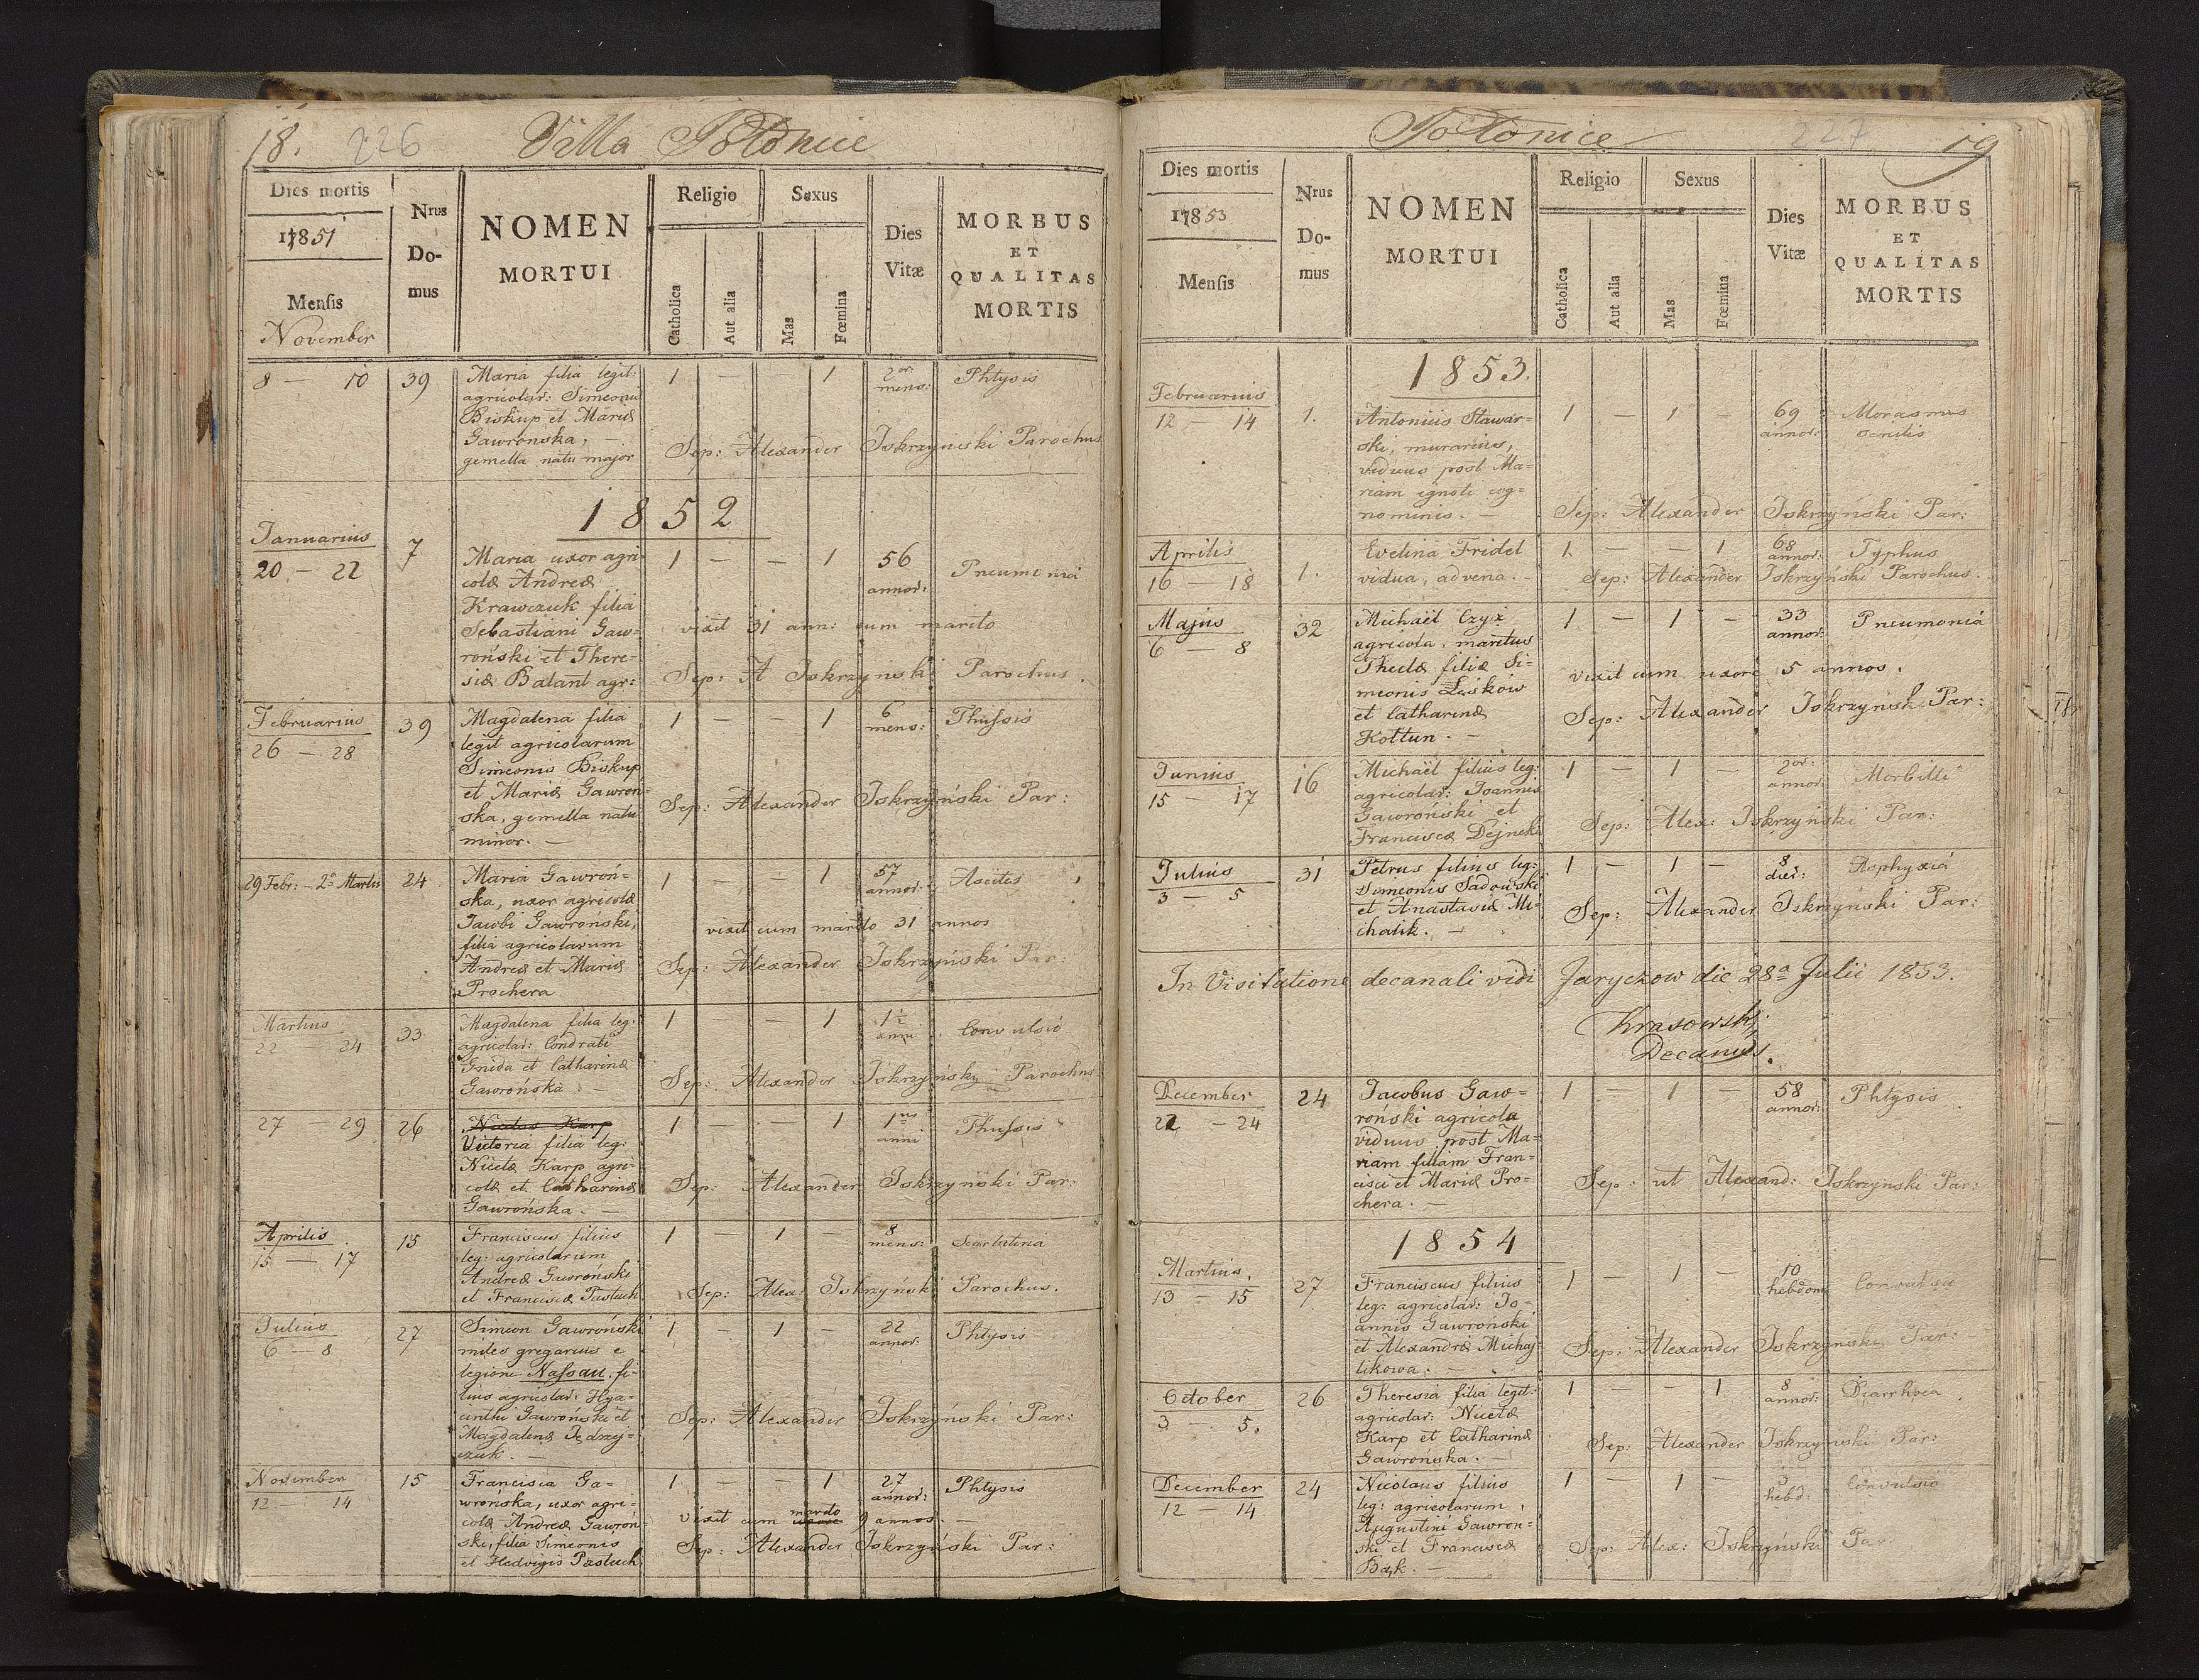 18. 226 Villa Połonice
Dies mortis
17851
Mensis
November
Nrus
Do-
mus
NOMEN
MORTUI
Religio
Catholica
Aut alia
Sexus
Mas
Fœmina
Dies
Vitæ
MORBUS
ET
QUALITAS
MORTIS
8 — 10 39 Maria filia legit: 1 — — 1 2or mens: Phtysis
agricolar: Simeonis
Biskup et Mariæ
Gawrońska, —
gemella natu major
Sep: Alexander Iskrzynski Parochus
1852
Januarius
20 — 22 7 Maria uxor agri- 1 — — 1 56 annor: Pneumonia
colæ Andreæ
Krawczuk filia
Sebastiani Gaw-
roński et There-
siæ Bałant agr:
vixit 31 ann: cum marito
Sep: A Iskrzynski Parochus.
Februarius
26 — 28 39 Magdalena filia 1 — — 1 6 mens: Thussis
legit agricolarum
Simeonis Biskup
et Mariæ Gawroń-
ska, gemella natu
minor. —
Sep: Alexander Iskrzyński Par:
29 Febr: — 2a Martii 24 Maria Gawroń- 1 — — 1 57 annor: Ascites
ska, uxor agricolæ
Jacobi Gawroński,
filia agricolarum
Andreæ et Mariæ
Prochera
vixit cum marito 31 annos
Sep: Alexander Iskrzyński Par:
Martius
22 24 33 Magdalena filia leg: 1 — — 1 1½ anni Convulsio
agricolar: Condrati
Gnida et Catharinæ
Gawrońska. —
Sep: Alexander Iskrzyński Parochus
27 — 29 26 Nicetas Karp 1 — — 1 1us anni Thussis
Victoria filia leg:
Nicetæ Karp agri-
colæ et Catharinæ
Gawrońska. —
Sep: Alexander Iskrzyński Par:
Aprilis
15 — 17 15 Franciscus filius 1 — 1 — 8 mens: Scarlatina
leg: agricolarum
Andreæ Gawroński
et Franciscæ Pastuch
Sep: Alex: Iskrzyński Parochus.
Julius
6 — 8 27 Simeon Gawroński 1 — 1 — 22 annor: Phtysis
miles gregarius e
legione Nassau. fi-
lius agricolar: Hya-
cinthi Gawroński et
Magdalenæ Jędrzej-
czuk. —
Sep: Alexander Iskrzyński Par:
November
12 14 15 Francisca Ga- 1 — — 1 27 annor: Phtysis
wrońska, uxor agri-
colæ Andreæ Gawroń-
ski, filia Simeonis
et Hedvigis Pastuch
vixit cum uxore marito 9 annos. —
Sep: Alexander Iskrzyński Par:
Połonice 227 19
Dies mortis
17853
Mensis
Nrus
Do-
mus
NOMEN
MORTUI
Religio
Catholica
Aut alia
Sexus
Mas
Fœmina
Dies
Vitæ
MORBUS
ET
QUALITAS
MORTIS
1853.
Februarius
12 — 14 1. Antonius Stawar- 1 — 1 — 69 annor: Morasmus senilis
ski, murarius,
viduus post Ma-
riam ignoti cog-
nominis. —
Sep: Alexander Iskrzyński Par:
Aprilis
16 18 1. Evelina Fridel 1 — — 1 68 annor: Typhus
vidua, advena. —
Sep: Alexander Iskrzyński Parochus.
Majus
6 — 8 32 Michaël Czyż 1 — 1 — 33 annor: Pneumonia
agricola, maritus
Theclæ filiæ Si-
meonis Łéskow
et Catharinæ
Kołtun. —
vixit cum uxore 5 annos.
Sep: Alexander Iskrzyński Par:
Junius
15 — 17 16 Michaël filius leg: 1 — 1 — 2or: annor: Morbilli
agricolar: Joannis
Gawroński et
Franciscæ Dejneka
Sep: Alex: Iskrzyński Par:
Julius
3 — 5 31 Petrus filius leg: 1 — 1 — 8 dier: Asphyxia
Simeonis Sadowski
et Anastasiæ Mi-
chalik. —
Sep: Alexander Iskrzyński Par:
In Visitatione decanali vidi Jaryczow die 28a Julii 1853.
Krasowski
Decanus.
December
22 — 24 24 Jacobus Gaw- 1 — 1 — 58 annor: Phtysis
roński agricola
viduus post Ma-
riam filiam Fran-
cisci et Mariæ Pro-
chera. —
Sep: ut Alexand: Iskrzyński Par:
1854
Martius.
13 — 15 27 Franciscus filius 1 — 1 — 10 hebdom: Convulsio
leg: agricolar: Jo-
annis Gawroński
et Alexandræ Michaj-
likowa. —
Sep: Alexander Iskrzyński Par:
October
3 — 5. 26 Theresia filia legit: 1 — — 1 8 annor: Diarrhoea
agricolar: Nicetæ
Karp et Catharinæ
Gawrońska. —
Sep: Alexander Iskrzyński Par:
December
12 — 14 24 Nicolaus filius 1 — 1 — 3 hebd: Convulsio
leg: agricolarum,
Augustini Gawroń-
ski et Franciscæ
Bąk. —
Sep: Alex: Iskrzyński Par